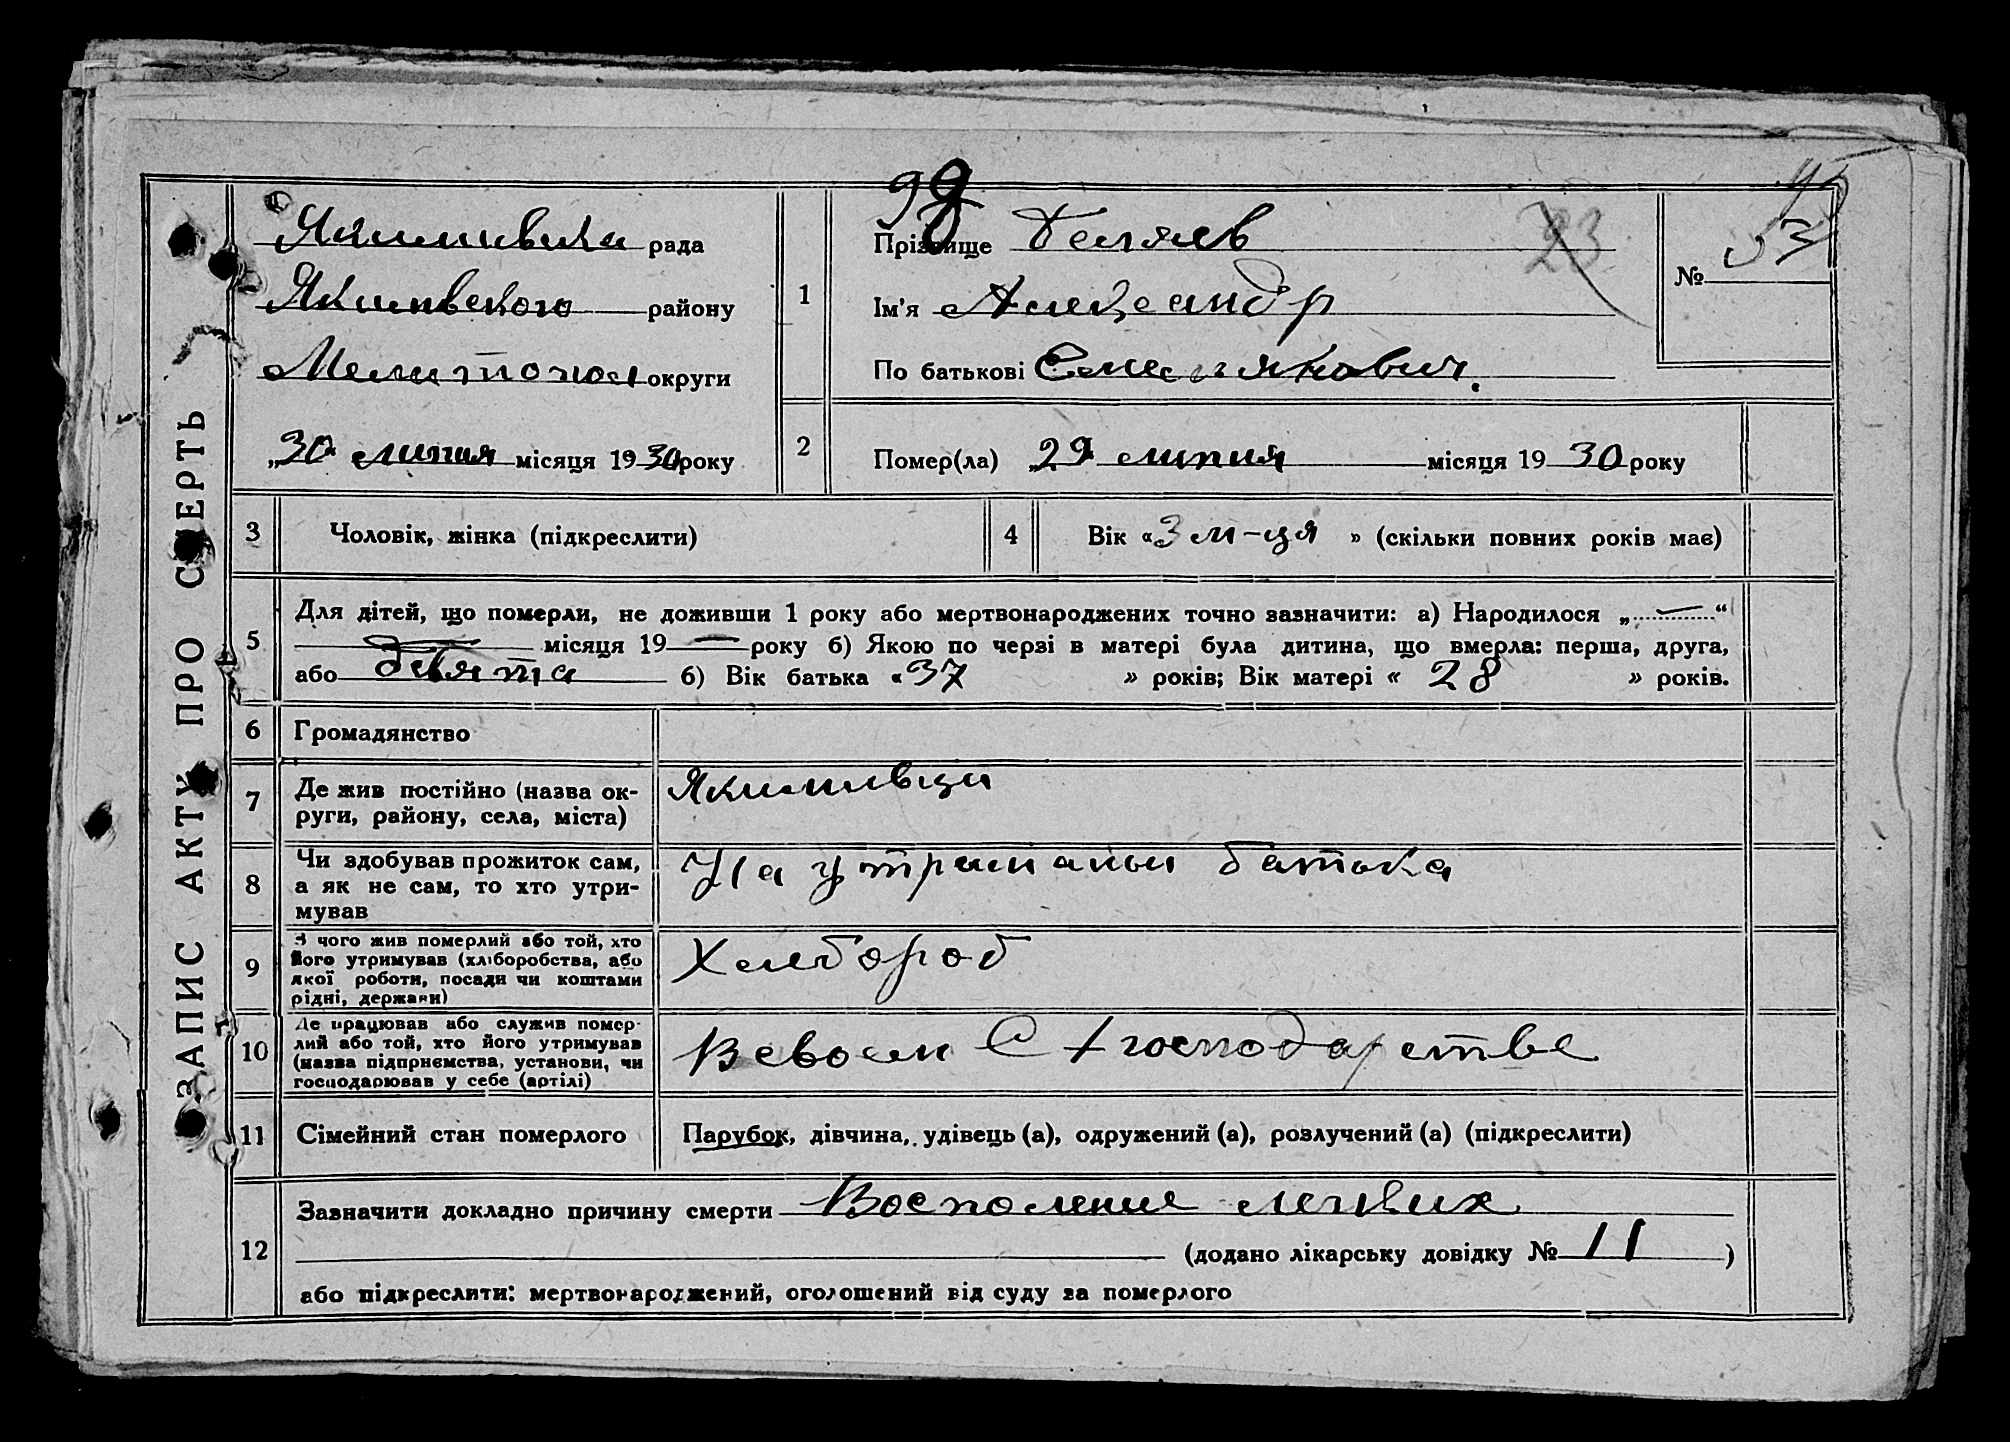 ЗАПИС АКТУ ПРО СМЕРТЬ
98
Якимивська рада
Якимивского району
Мелитопол округи
„30“ липня місяця 1930 року
1
Прізвище Беляев
Ім'я Александр
По батькові Емельянович.
23
№ 53
2
Помер(ла) „29“ липня місяця 1930 року
3 Чоловік, жінка (підкреслити)
4 Вік «3 м-ця » (скільки повних років має)
5 Для дітей, що померли, не доживши 1 року або мертвонароджених точно зазначити: а) Народилося „ — “
— місяця 19 — року б) Якою по черзі в матері була дитина, що вмерла: перша, друга,
або девята б) Вік батька «37 » років; Вік матері « 28 » років.
6 Громадянство
7 Де жив постійно (назва ок-
руги, району, села, міста)
Якимивци
8 Чи здобував прожиток сам,
а як не сам, то хто утри-
мував
На утриманьи батька
9 З чого жив померлий або той, хто
його утримував (хліборобства, або
якої роботи, посади чи коштами
рідні, держави)
Хлебороб
10 Де працював або служив помер-
лий або той, хто його утримував
(назва підприємства, установи, чи
господарював у себе (артілі)
Всвоем С господарстве
11 Сімейний стан померлого
Парубок, дівчина, удівець (а), одружений (а), розлучений (а) (підкреслити)
12 Зазначити докладно причину смерти Восполение легких
(додано лікарську довідку № 11 )
або підкреслити: мертвонароджений, оголошений від суду за померлого